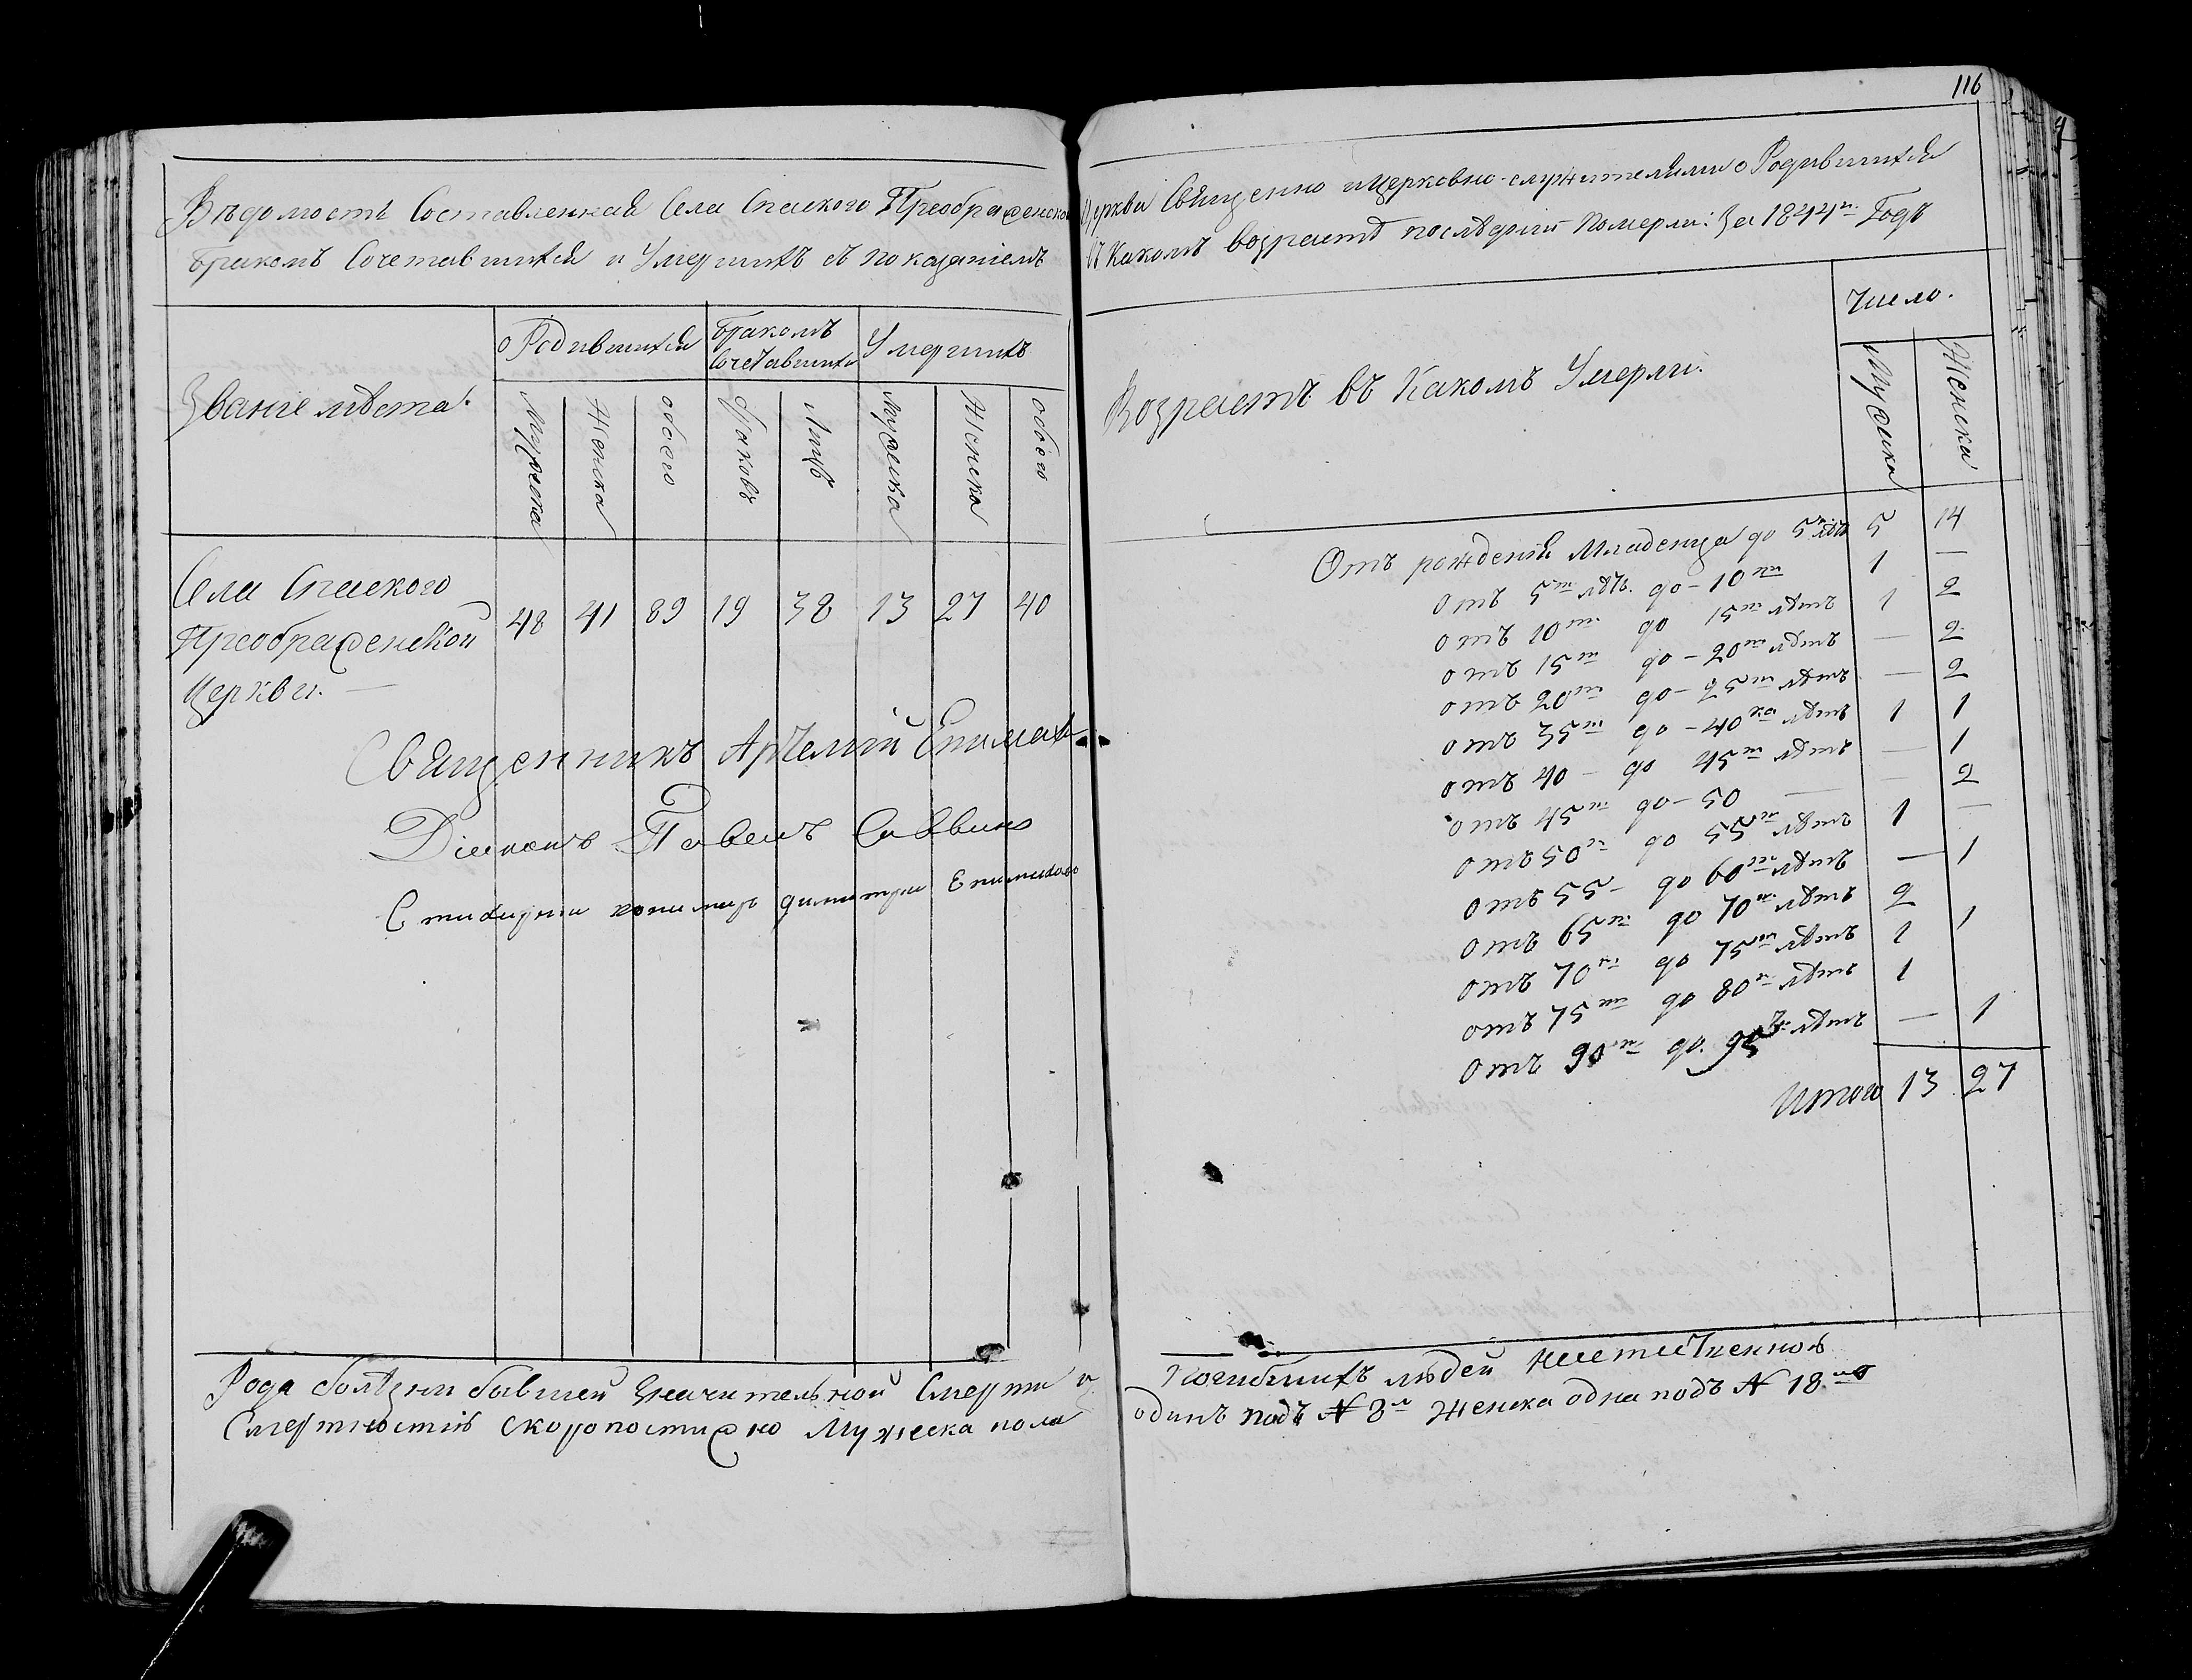 116
Вѣдомость Составленная Села Спаского Преображенской
Бракомъ Сочетавшихся и Умершихъ съ показанiемъ
Званiе мѣста.
о Родившихся
Бракомъ Сочетавшихся
Умершихъ
Мужеска
Женска
обоего
браковъ
Лицъ
Мужеска
Женска
обоего
Села Спаского
Преображенской
Церкви. —
48 41 89 19 38 13 27 40
Священникъ Артемiй
Дiаконъ Павелъ Саввинъ
димитрий
Рода болѣзни бывшей Значительной Смерти и
Смертности скоропостижно Мужеска пола
Церкви Священно и церковно-служителями о Родившихся
въ Какомъ возрастѣ послѣднiй померли: За 1844й Годъ
Возрастъ въ Какомъ Умерли.
Число.
Мужеска
Женска
Отъ рожденiя Младенца до 5 5 14
отъ 5ти до - 10ти 1 —
отъ 10ти до 15ти лѣтъ 1 2
отъ 15ти до - 20ти лѣтъ — 2
отъ 20ти до - 25ти лѣтъ — 2
отъ 35ти до - 40 лѣтъ 1 1
отъ 40 - до 45ти лѣтъ — 1
отъ 45ти до - 50 — 2
отъ 50 до 55ти лѣтъ 1 —
отъ 55 - до 60ти лѣтъ — 1
отъ 65ти до 70 лѣтъ 2
отъ 70ти до 75ти лѣтъ 1 1
отъ 75ти до 80 лѣтъ 1
отъ 90ти до лѣтъ — 1
Итого 13 27
Погибшихъ людей неестественной
одинъ подъ № 8м Женска одна подъ № 18мъ